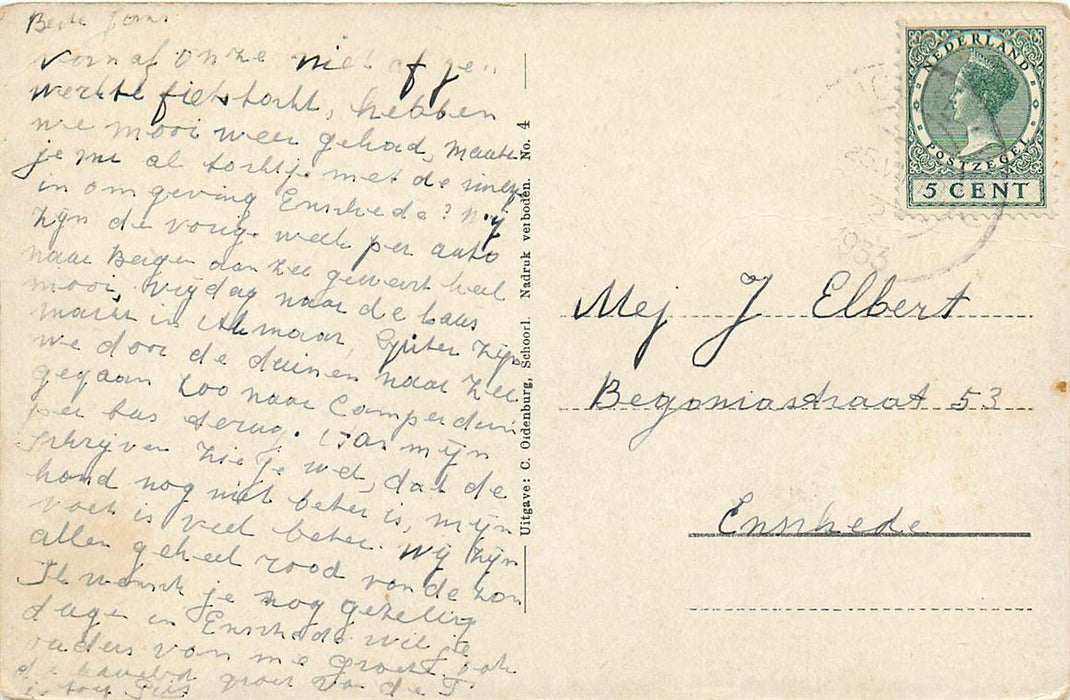 Beste Jons
vanaf onze niet af je
werkte fietstocht, hebben
we mooi weer gehad, maakt
je nu al tochtje met de
in omgeving Enschede? Wij
zijn de vorige week per auto
naar Bergen aan Zee geweest heel
mooi, vrijdag naar de kaas
markt in Alkmaar, zijn
we door de duinen naar Zee
gegaan zoo naar Camperduin
per bus terug. Aan mijn
schrijven zie je wel, dat de
hand nog niet beter is, mijn
voet is veel beter. Wij zijn
allen geheel rood van de zon
Ik wensch je nog gezellig
dagen in Enschede wil je
ouders van me groet ook
de groet van de
Uitgave: C. Oldenburg, Schoorl. Nadruk verboden. No. 4
NEDERLAND
POSTZEGEL
5 CENT
1933
Mej J Elbert
Begoniastraat 53
Enschede